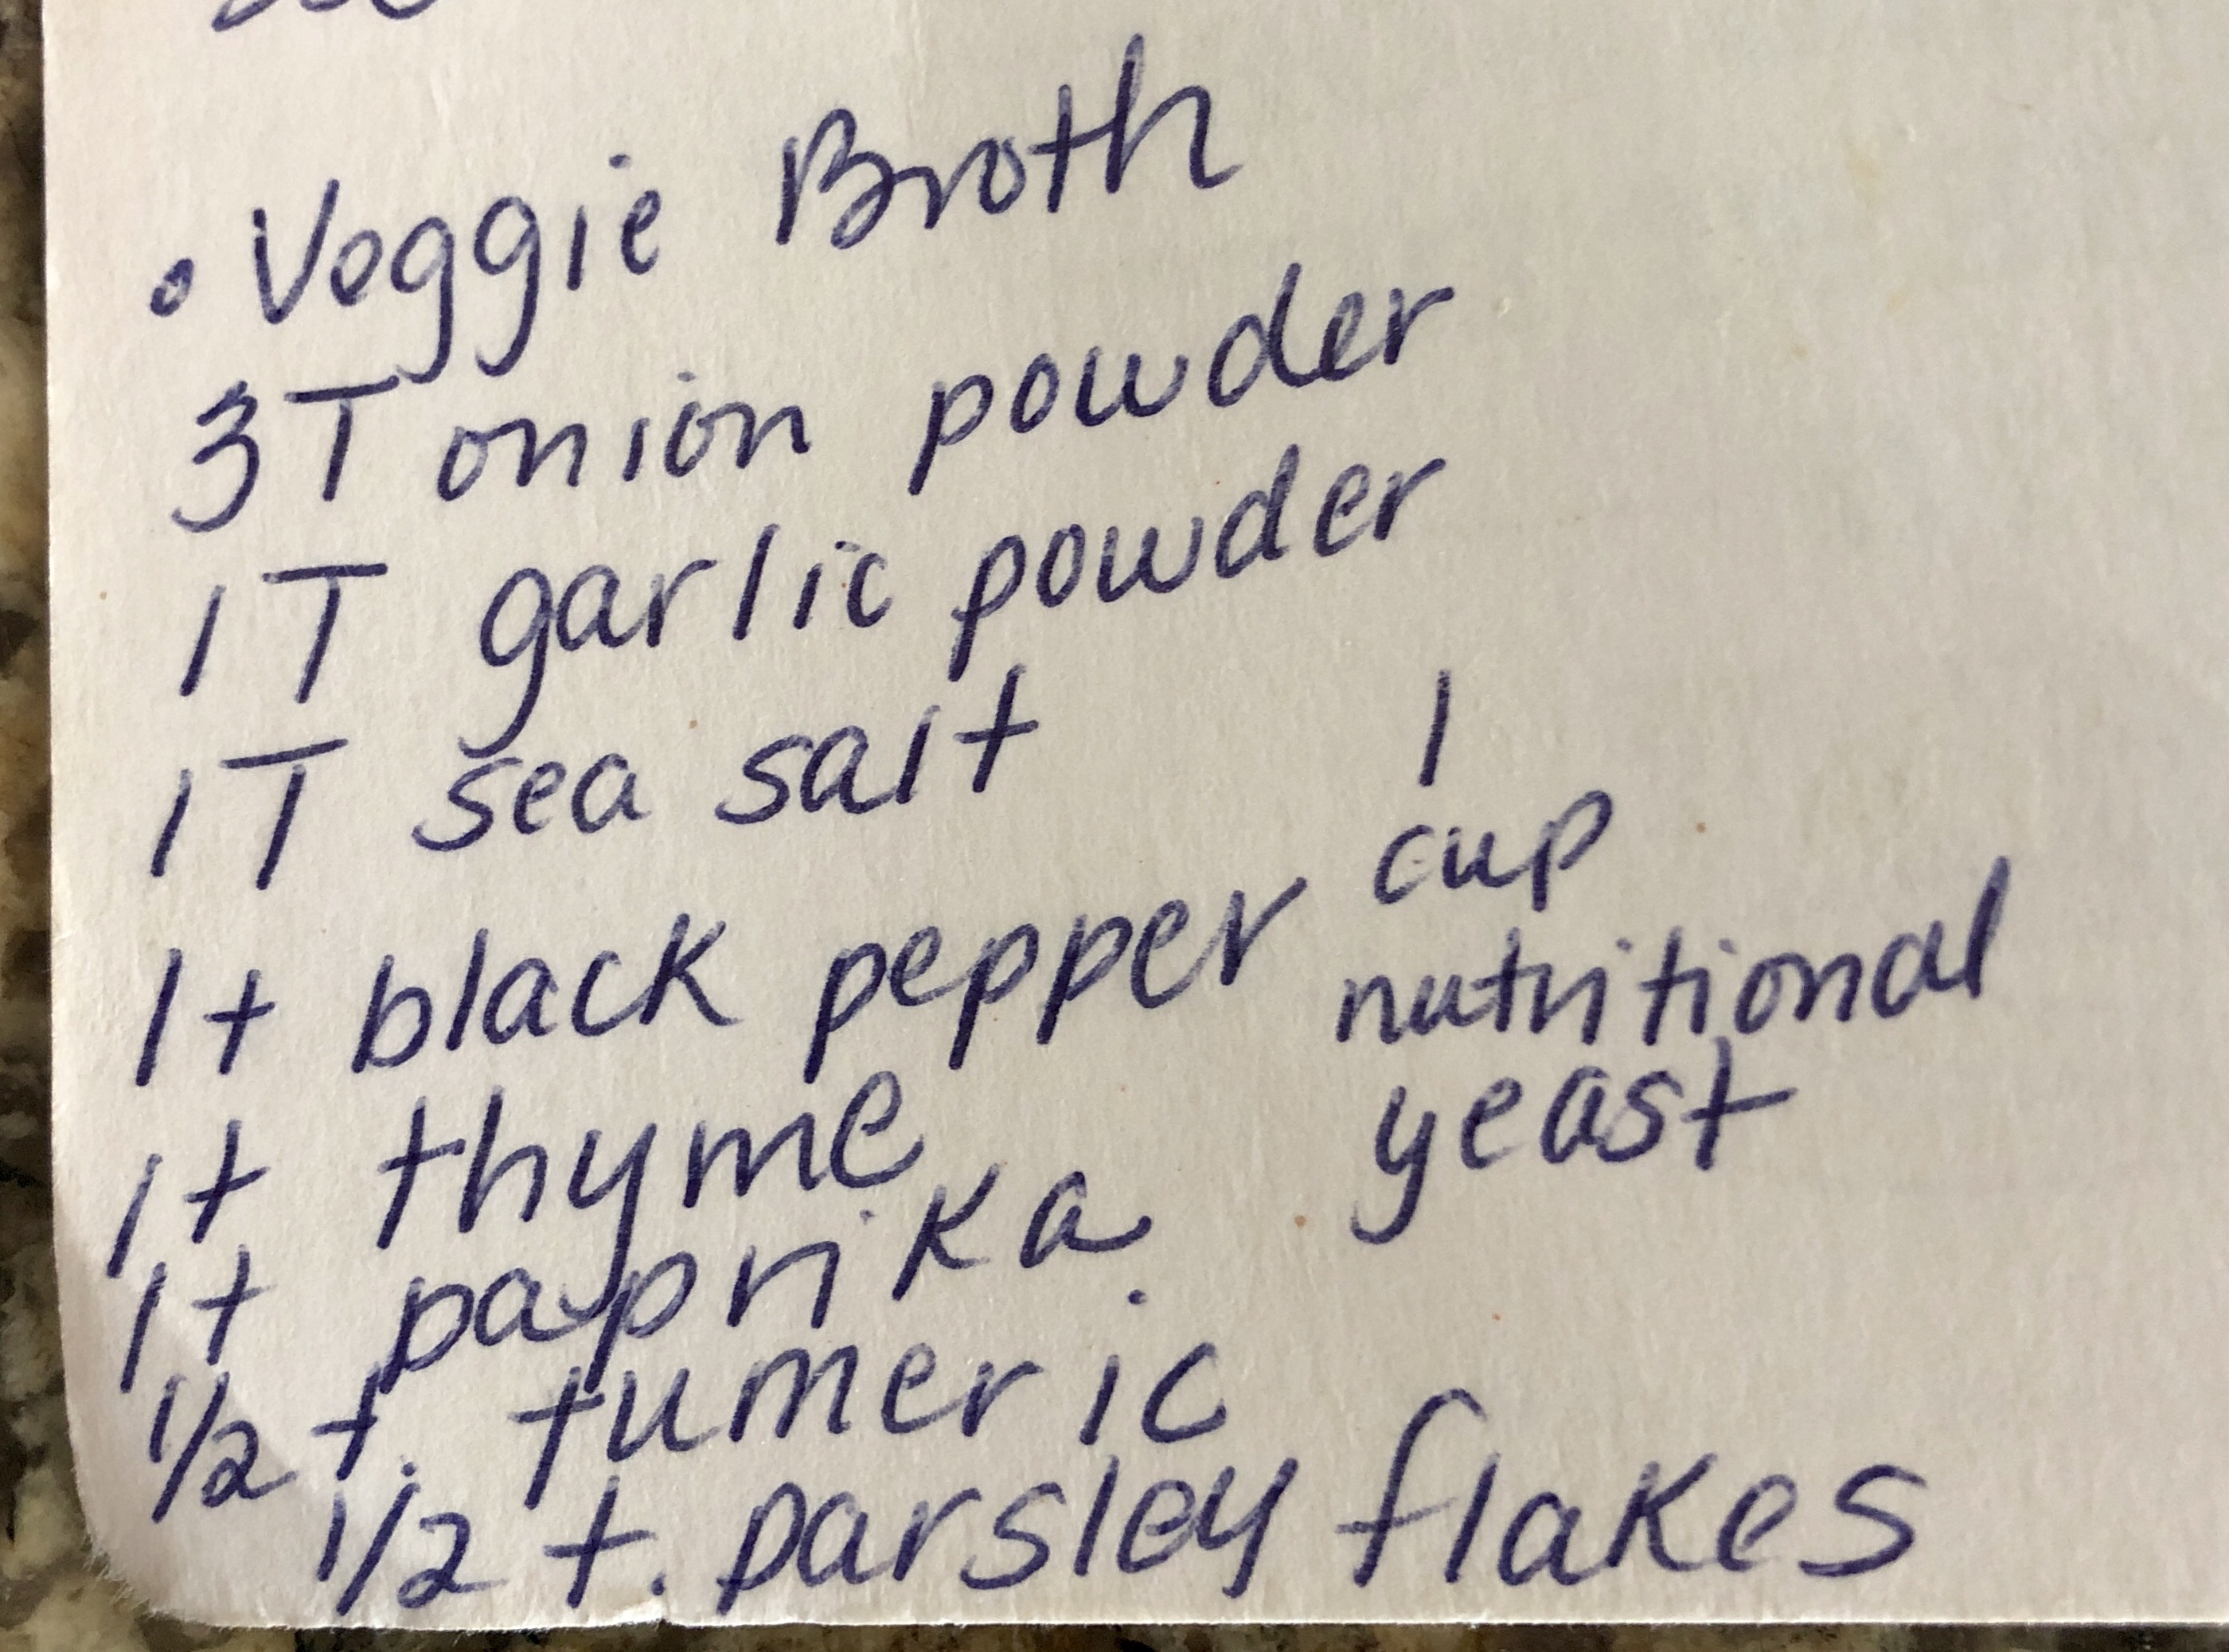 • Veggie Broth
3T onion powder
1T garlic powder
1T sea salt
1t black pepper
1t thyme
1t paprika
1/2 t. tumeric
1/2 t. parsley flakes
1
cup
nutritional
yeast